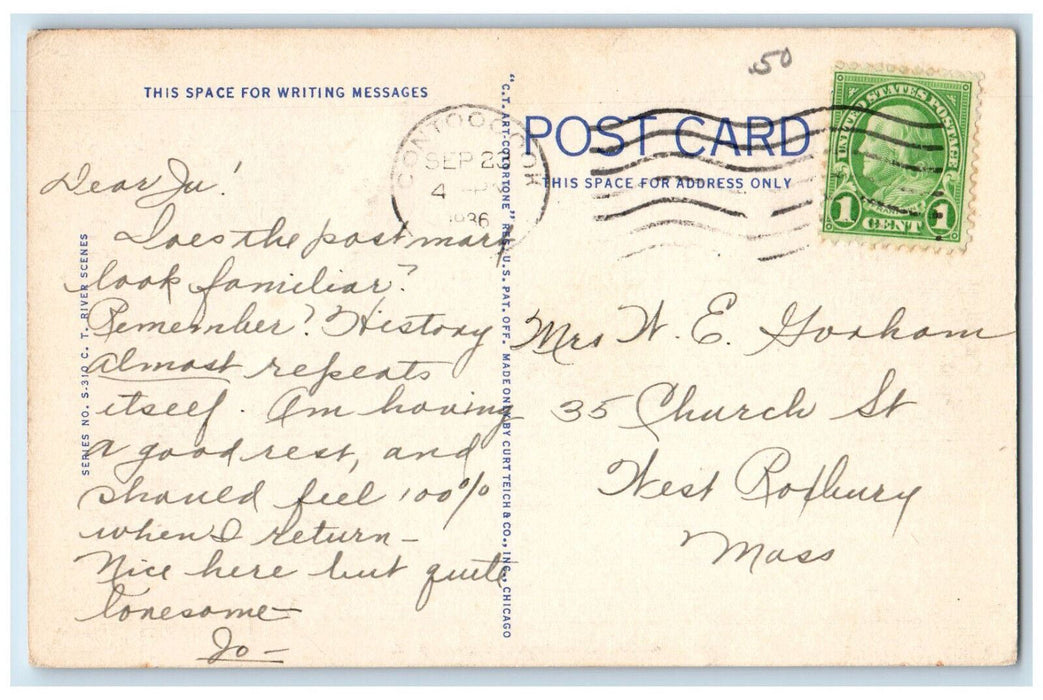 THIS SPACE FOR WRITING MESSAGES
Dear Ju!
Does the postmark
look familiar?
Remember? History
almost repeats
itself. Am having
a good rest, and
should feel 100%
when I return –
Nice here but quite
lonesome –
Jo –
SERIES NO. S-310 C. T. RIVER SCENES
"C.T. ART-COLORTONE" REG. U.S. PAT. OFF. MADE ONLY BY CURT TEICH & CO., INC., CHICAGO
CONTOOCOOK
SEP 23
4
1936
50
POST CARD
THIS SPACE FOR ADDRESS ONLY
UNITED STATES POSTAGE
1 CENT 1
Mrs W. E. Gorham
35 Church St
West Roxbury
Mass